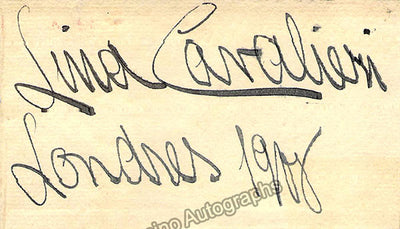 Lina Cavalieri
Londres 1908
ino Autographs